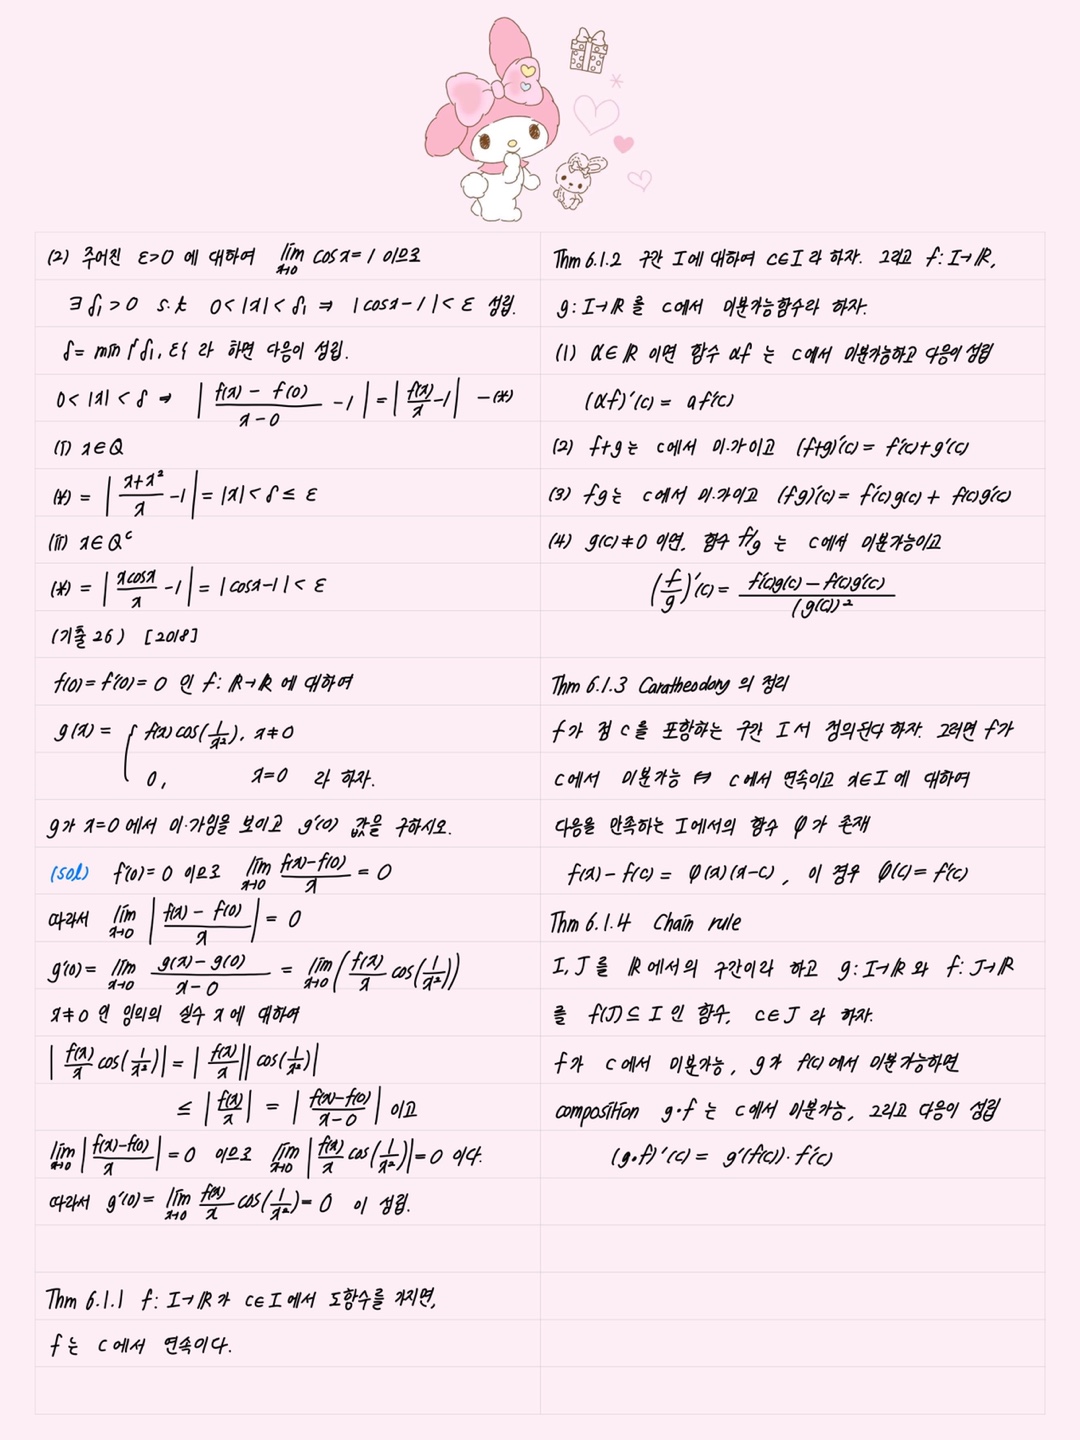 (2) 주어진 ε>0 에 대하여 lim x→0 cosx=1 이므로
∃ δ₁>0 s.t 0<|x|<δ₁ ⇒ |cosx-1|<ε 성립.
δ= min{δ₁, ε} 라 하면 다음이 성립.
0<|x|<δ ⇒ | (f(x)-f(0))/(x-0) -1 | = | f(x)/x -1 | -(*)
(i) x∈Q
(*) = | (x+x²)/x -1 | = |x|<δ≤ε
(ii) x∈Qᶜ
(*) = | xcosx/x -1 | = |cosx-1|<ε
(기출 26) [2018]
f(0)=f'(0)=0 인 f: ℝ→ℝ 에 대하여
g(x) = { f(x)cos(1/x²), x≠0
0, x=0 라 하자.
g가 x=0 에서 미·가임을 보이고 g'(0) 값을 구하시오.
(sol) f'(0)=0 이므로 lim x→0 (f(x)-f(0))/x = 0
따라서 lim x→0 | (f(x)-f(0))/x | = 0
g'(0)= lim x→0 (g(x)-g(0))/(x-0) = lim x→0 ( f(x)/x cos(1/x²))
x≠0 인 임의의 실수 x에 대하여
| f(x)/x cos(1/x²)| = | f(x)/x || cos(1/x²)|
≤ | f(x)/x | = | (f(x)-f(0))/(x-0) | 이고
lim x→0 | (f(x)-f(0))/x | =0 이므로 lim x→0 | f(x)/x cos(1/x²)|=0 이다.
따라서 g'(0)= lim x→0 f(x)/x cos(1/x²)= 0 이 성립.
Thm 6.1.1 f: I→ℝ가 c∈I에서 도함수를 가지면,
f는 c에서 연속이다.
Thm 6.1.2 구간 I에 대하여 c∈I라 하자. 그리고 f: I→ℝ,
g: I→ℝ를 c에서 미분가능함수라 하자.
(1) α∈ℝ 이면 함수 αf 는 c에서 미분가능하고 다음이 성립
(αf)'(c) = af'(c)
(2) f+g는 c에서 미·가이고 (f+g)'(c) = f'(c)+g'(c)
(3) fg는 c에서 미·가이고 (fg)'(c) = f'(c)g(c) + f(c)g'(c)
(4) g(c)≠0 이면, 함수 f/g 는 c에서 미분가능이고
(f/g)'(c) = (f'(c)g(c)-f(c)g'(c))/(g(c))²
Thm 6.1.3 Caratheodory 의 정리
f가 점 c를 포함하는 구간 I서 정의된다 하자. 그러면 f가
c에서 미분가능 ⇔ c에서 연속이고 x∈I에 대하여
다음을 만족하는 I에서의 함수 φ가 존재
f(x)-f(c) = φ(x)(x-c), 이 경우 φ(c)=f'(c)
Thm 6.1.4 Chain rule
I, J를 ℝ에서의 구간이라 하고 g: I→ℝ와 f: J→ℝ
를 f(J)⊆I인 함수, c∈J라 하자.
f가 c에서 미분가능, g가 f(c)에서 미분가능하면
composition g∘f 는 c에서 미분가능, 그리고 다음이 성립
(g∘f)'(c) = g'(f(c))·f'(c)